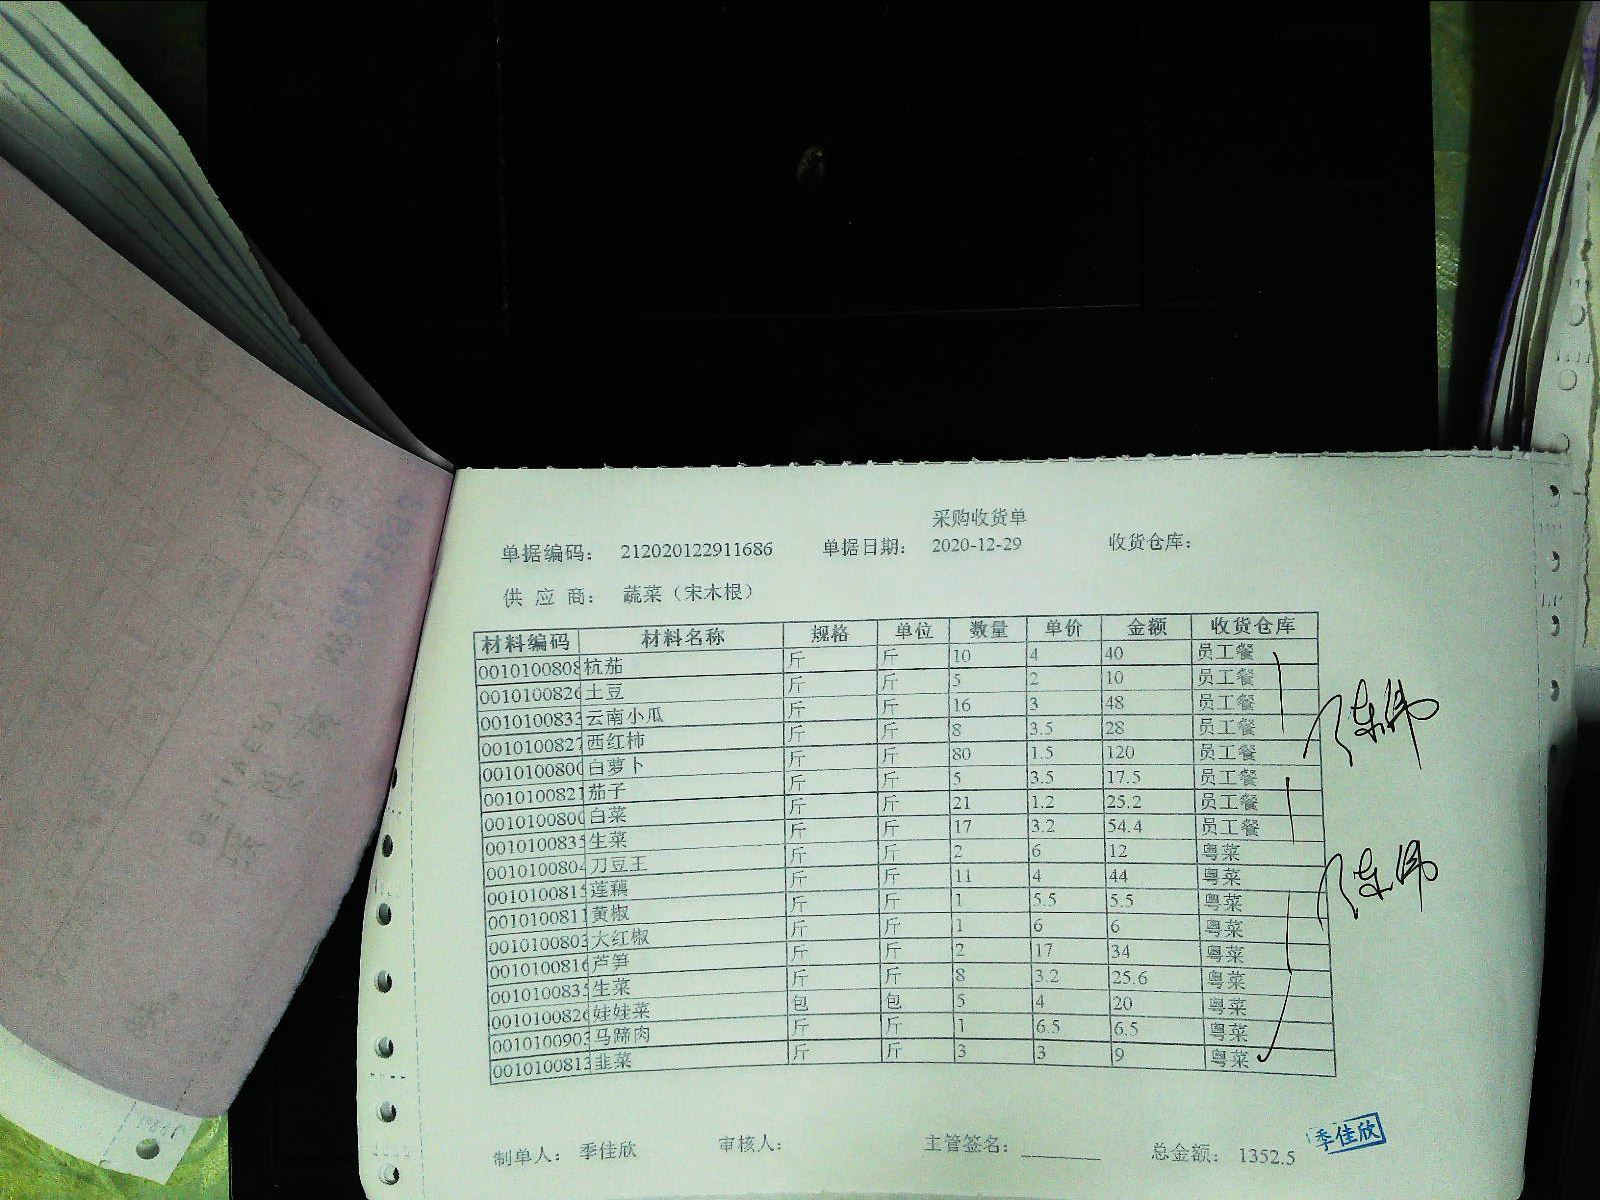 采购收货单
单据编码： 212020122911686 单据日期： 2020-12-29 收货仓库：
供 应 商： 蔬菜（宋木根）
材料编码 材料名称 规格 单位 数量 单价 金额 收货仓库
0010100808 杭茄 斤 斤 10 4 40 员工餐
001010082 土豆 斤 斤 5 2 10 员工餐
001010083 云南小瓜 斤 斤 16 3 48 员工餐
001010082 西红柿 斤 斤 8 3.5 28 员工餐
001010080 白萝卜 斤 斤 80 1.5 120 员工餐
001010082 茄子 斤 斤 5 3.5 17.5 员工餐
001010080 白菜 斤 斤 21 1.2 25.2 员工餐
001010083 生菜 斤 斤 17 3.2 54.4 员工餐
001010080 刀豆王 斤 斤 2 6 12 粤菜
001010081 莲藕 斤 斤 11 4 44 粤菜
001010081 黄椒 斤 斤 1 5.5 5.5 粤菜
001010080 大红椒 斤 斤 1 6 6 粤菜
001010081 芦笋 斤 斤 2 17 34 粤菜
001010083 生菜 斤 斤 8 3.2 25.6 粤菜
001010082 娃娃菜 包 包 5 4 20 粤菜
001010090 马蹄肉 斤 斤 1 6.5 6.5 粤菜
001010081 韭菜 斤 斤 3 3 9 粤菜
制单人： 季佳欣 审核人： 主管签名： 总金额： 1352.5
季佳欣